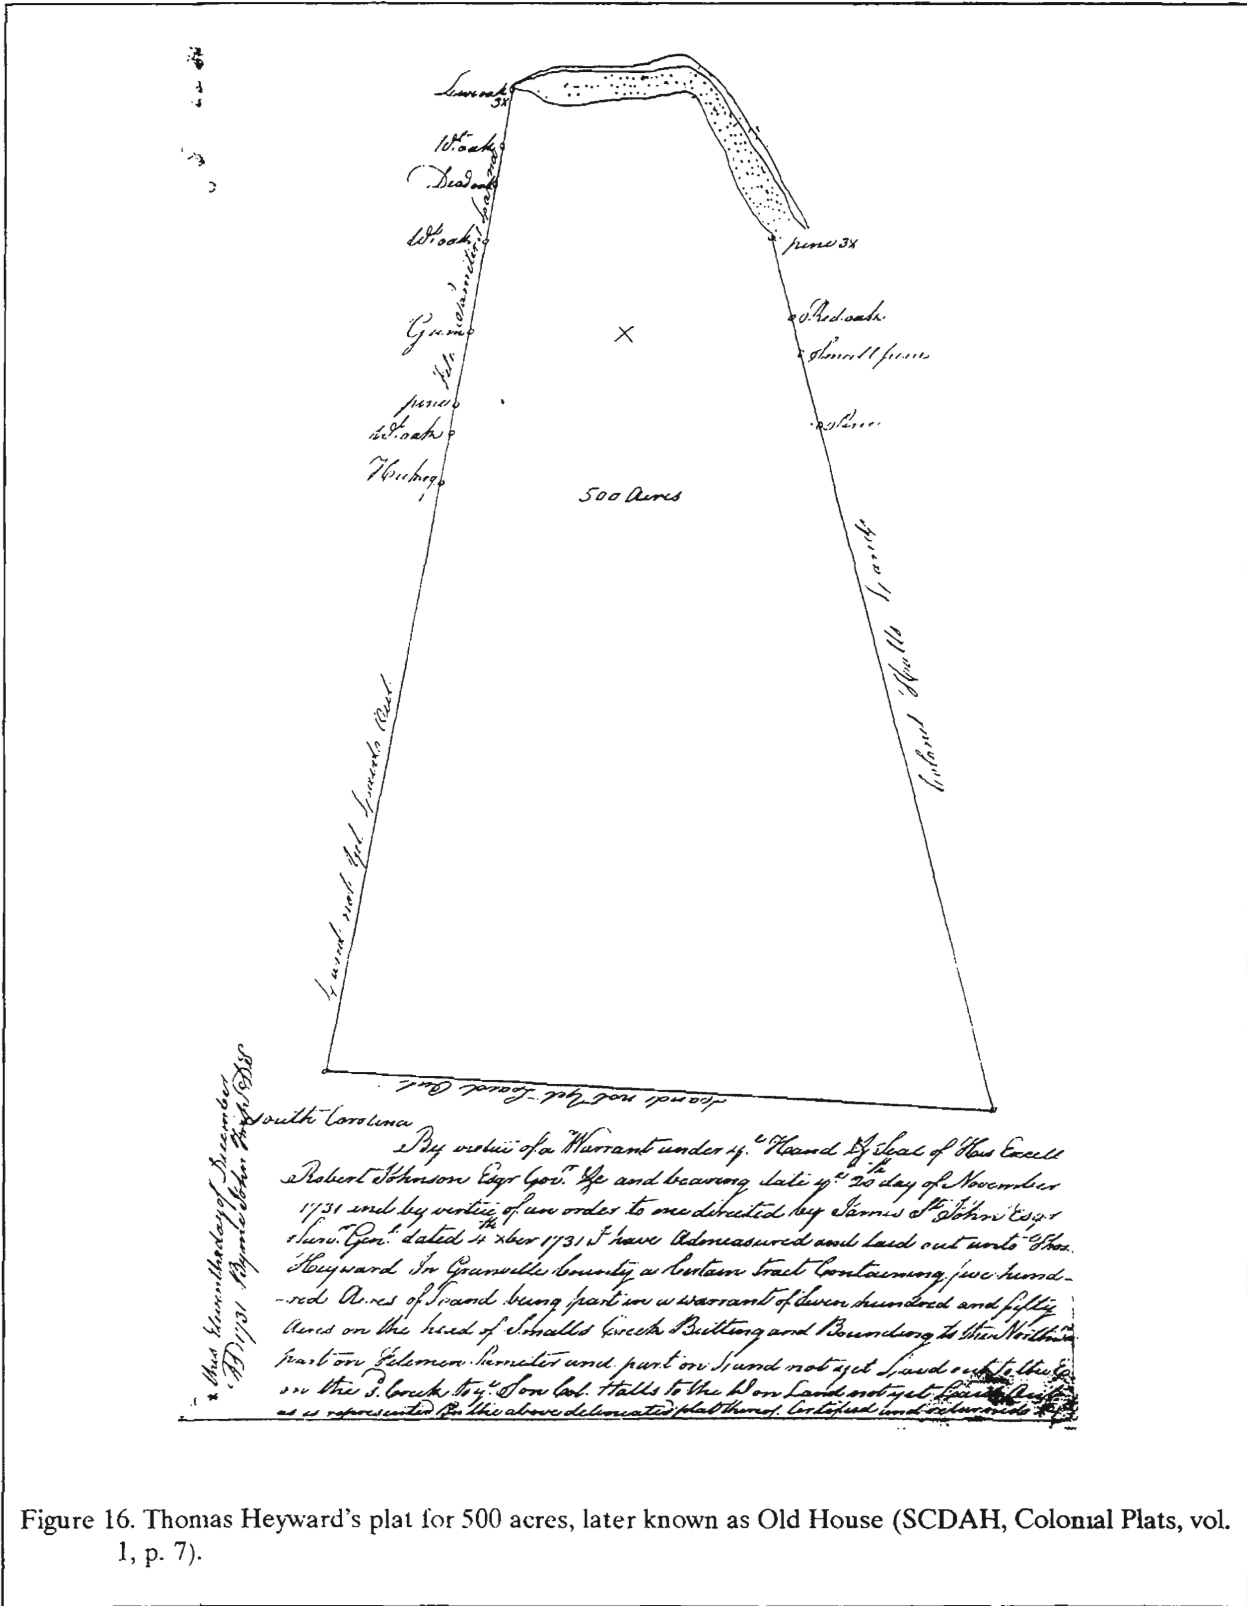 Live oak
3x
Wt. oak
Dead oak
Wt. oak
Gum
pine
Wt. oak
Hickory
Land not Yet Laid Out
pine 3x
Red oak
Small pine
Pine
500 Acres
Colonel Halls Land
Land not Yet Laid Out
South Carolina
By virtue of a Warrant under ye. Hand & Seal of His Excell
Robert Johnson Esqr Govr. &c and bearing date ye. 20th day of November
1731 and by vertue of an order to me directed by James St. John Esqr
Survr. Genl. dated 4th xber 1731 I have Admeasured and laid out unto Thos.
Heyward In Granville County a Certain tract Containing five hund-
-red Acres of Land being part in a warrant of Seven hundred and fifty
Acres on the head of Smalls Creek Butting and Bounding to the
part on and part on Land not yet Laid out to the
on the Sd. Creek to ye. S on Col. Halls to the W on Land not yet Laid Out
as is represented In the above delineated plat thereof. Certified and returned
this Eleventh day of December
AD 1731 By me John
Figure 16. Thomas Heyward's plat for 500 acres, later known as Old House (SCDAH, Colonial Plats, vol.
1, p. 7).